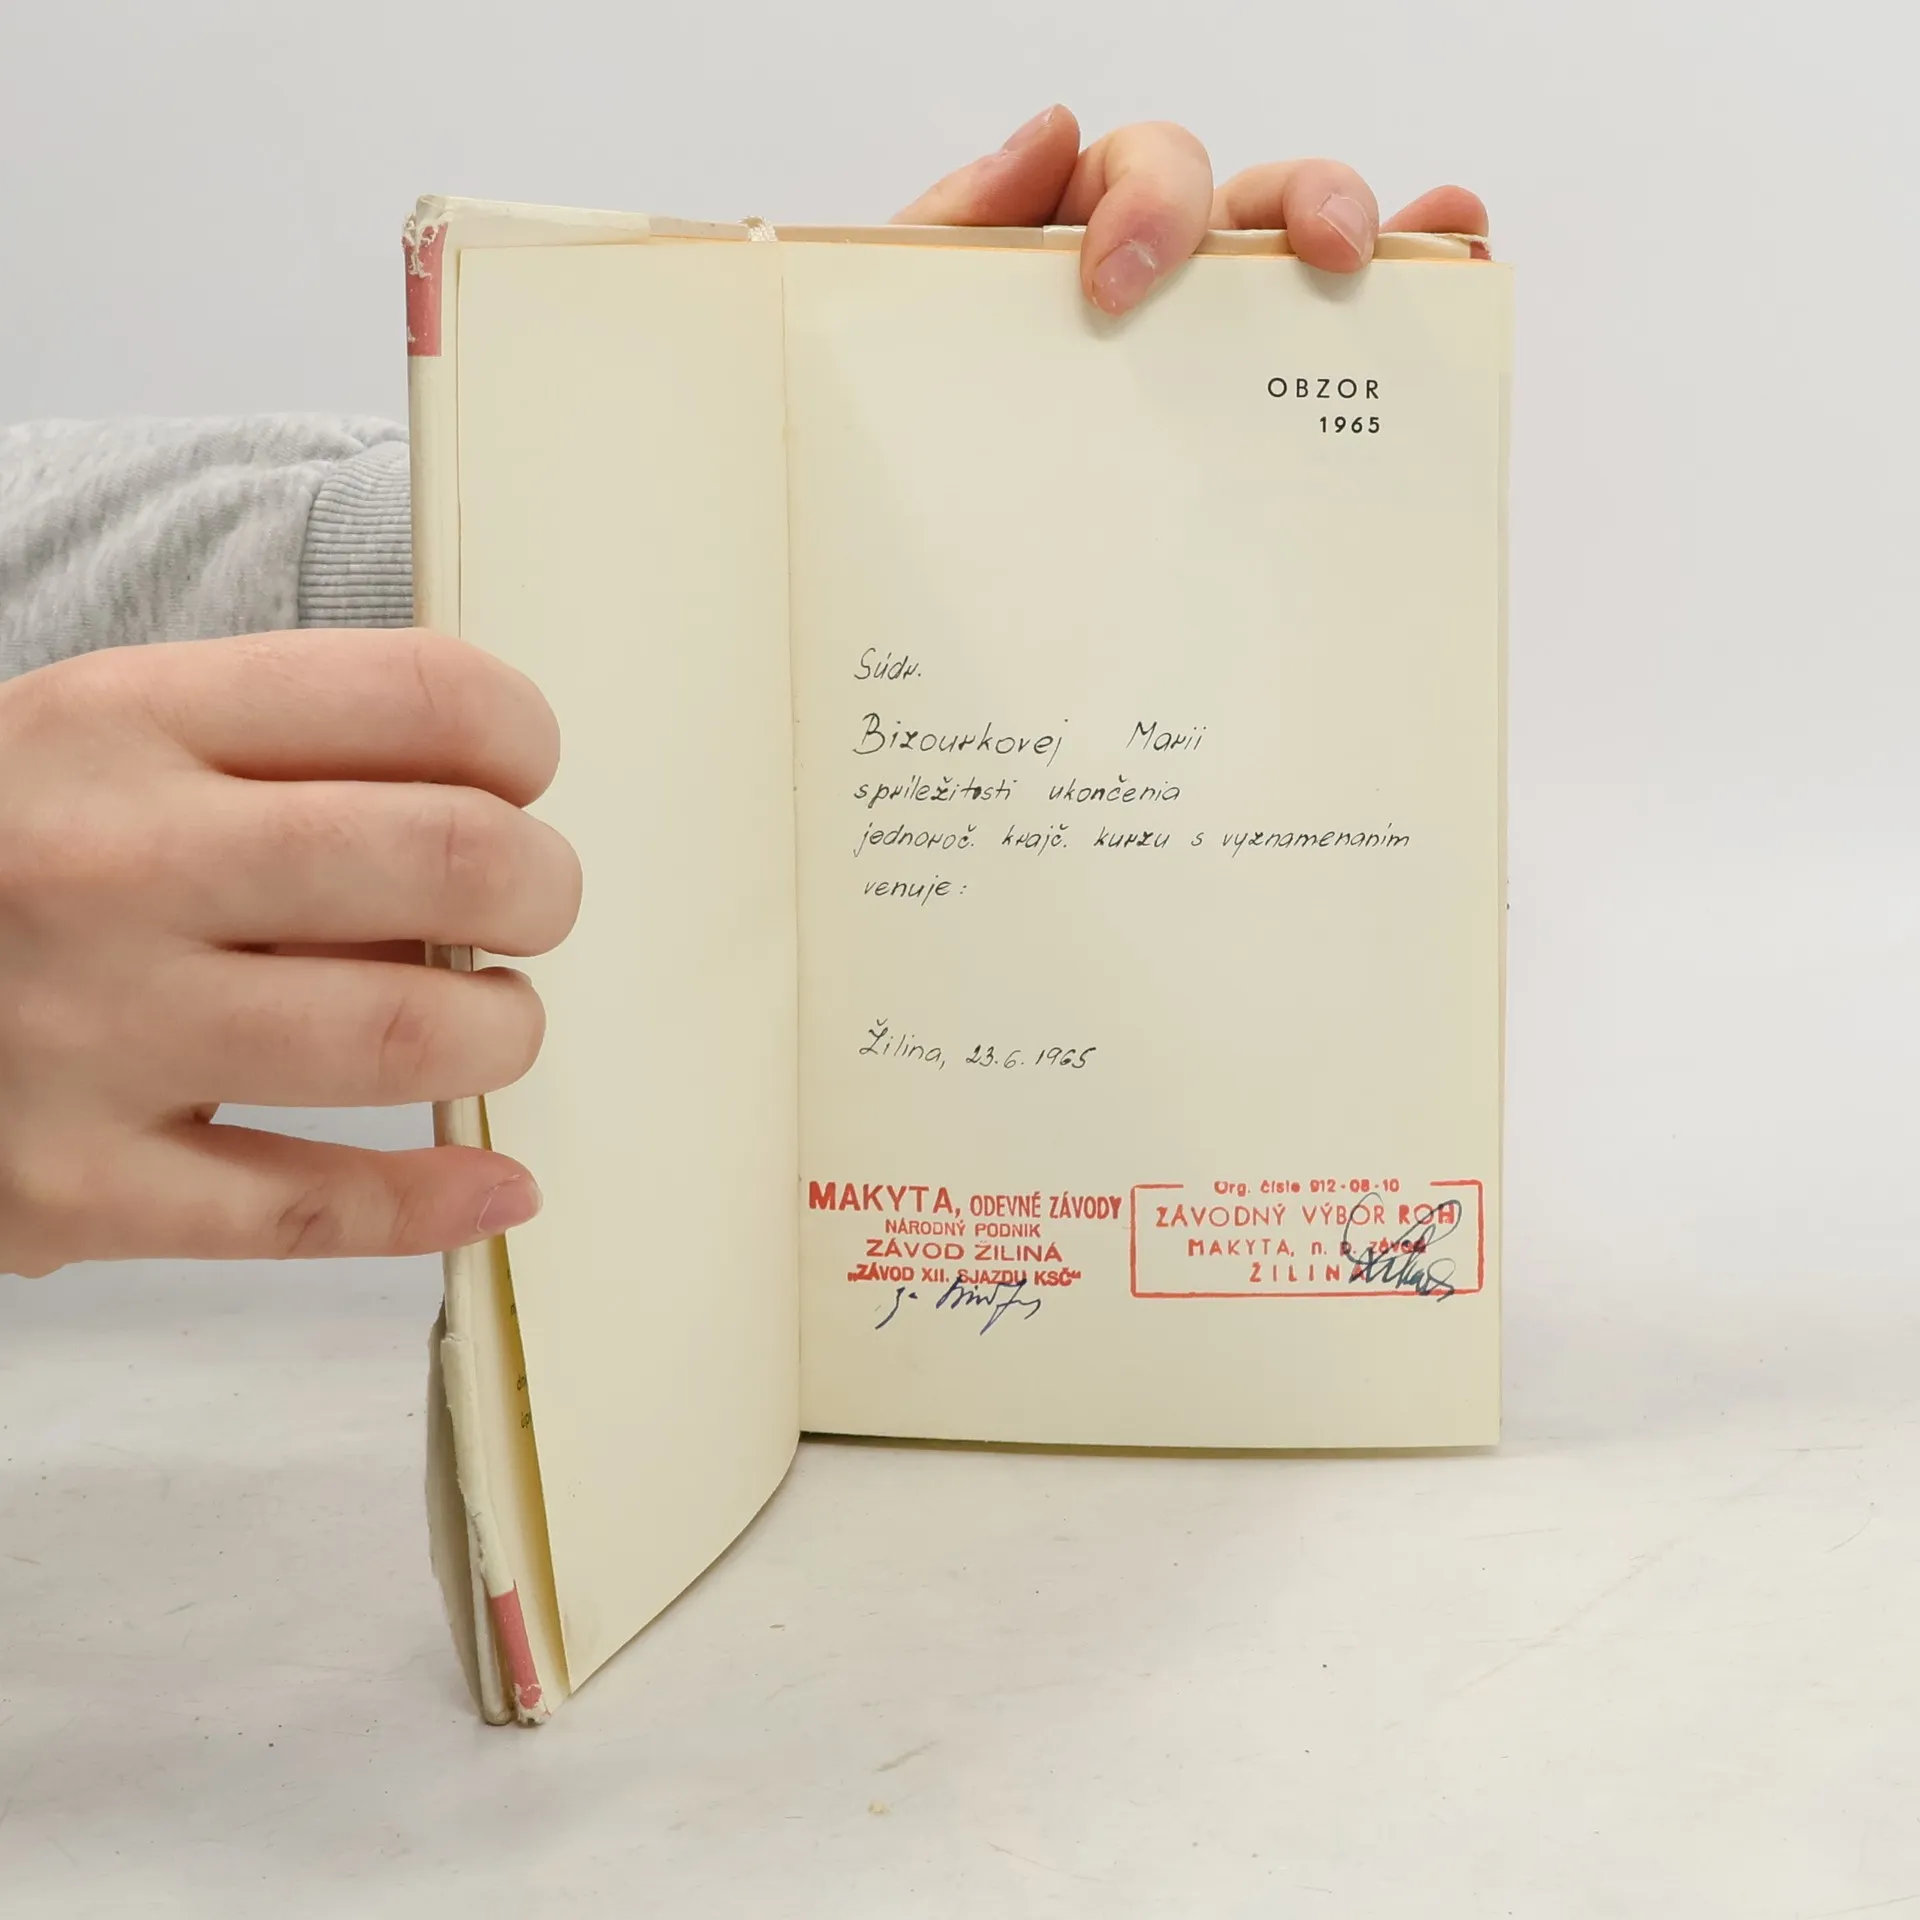 OBZOR
1965
Súdr.
Bizourkovej Marii
s príležitosti ukončenia
jednoroč. krajč. kurzu s vyznamenaním
venuje:
Žilina, 23.6.1965
MAKYTA, ODEVNÉ ZÁVODY
NÁRODNÝ PODNIK
ZÁVOD ŽILINA
„ZÁVOD XII. SJAZDU KSČ“
Org. číslo 912-08-10
ZÁVODNÝ VÝBOR ROH
MAKYTA, n. p. závod
ŽILINA